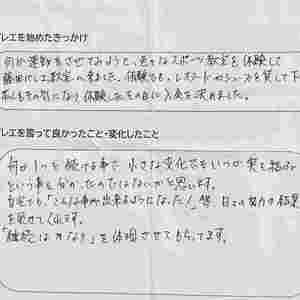 バレエを始めたきっかけ
何か運動をさせてみようと、色々なスポーツ教室を体験して
藤田バレエ教室に来ました。体験でも、レオタードやシューズを貸して下
本人もその気になり体験したその日に入会を決めました。
レエを習って良かったこと・変化したこと
何か1つを続ける事で、小さな変化でもいつか実を結ぶ
という事を分かったのではないかと思います。
自宅でも「こんな事が出来るようになった！」等、日々の努力の結果
を見せてくれます。
「継続は力なり」を体現させてもらってます。